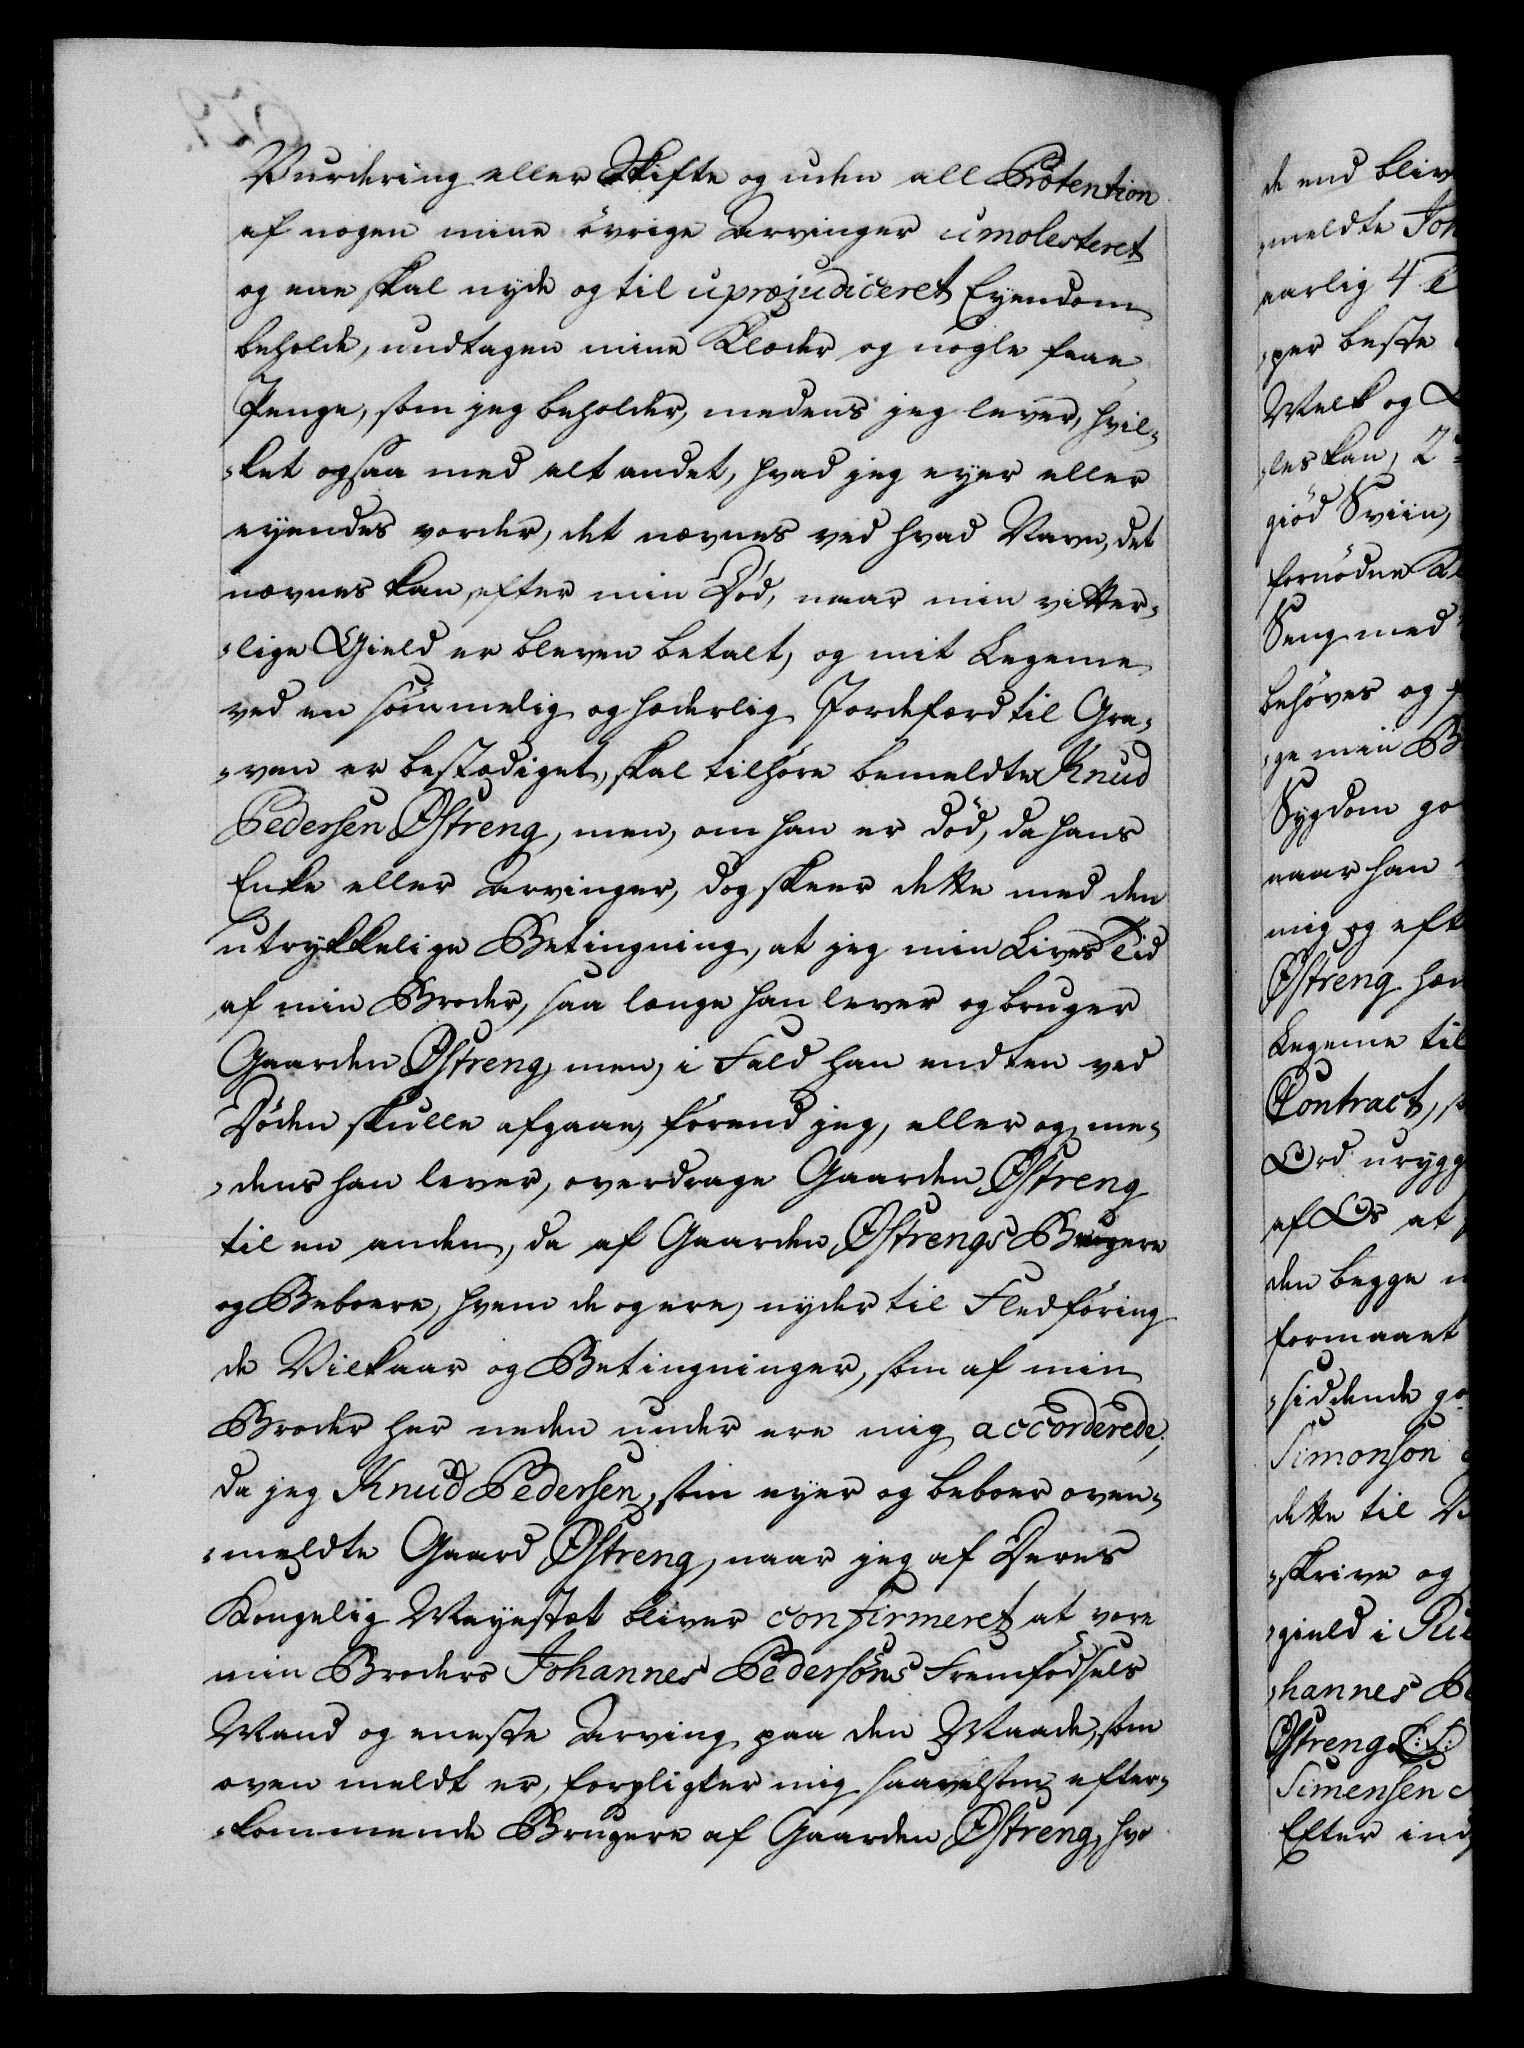 Vurdering eller Skifte og uden all Prætention
af nogen mine övrige Arvinger umolesteret
og ene skal nyde og til upræjudiceret Eyendom
beholde, undtagen mine Klæder og nogle faae
Penge, som jeg beholder, medens jeg lever, hvil-
-ket ogsaa med alt andet, hvad jeg eyer eller
eyendes vorder, det nævnes ved hvad Navn, det
nævnes kan, efter min Död, naar min vitter-
-lige Gield er bleven betalt, og mit Legeme
ved en sömmelig og hæderlig Jordefærd til Gra-
-ven er bestædiget, skal tilhöre bemeldte Knud
Pedersen Østreng, men, om han er död, da hans
Enke eller Arvinger, dog skeer dette med den
utrykkelige Betingning, at jeg min Lives Tid
af min Broder, saa længe han lever og bruger
Gaarden Østreng, men, i Fald han endten ved
Döden skulle afgaae, förend jeg, eller og, me-
-dens han lever, overdrage Gaarden Østreng
til en anden, da af Gaarden Østrengs Brugere
og Beboere, hvem de og ere, nyder til Fledföring
de Vilkaar og Betingninger, som af min
Broder her neden under ere mig accorderede;
da jeg Knud Pedersen, som eyer og beboer oven-
-meldte Gaard Østreng, naar jeg af Deres
Kongelig Mayestæt bliver confirmeret at være
min Broders Johannes Pedersöns Fremfödsels
Mand og eneste Arving paa den Maade, som
oven meldt er, forpligter mig saavelsom efter-
-kommende Brugere af Gaarden Østreng, hvo
de end bliv
-meldte Joh
aarlig 4
-per beste
Melk og
-les kan, 2
giöd Sviin,
fornödne
Seng med
behöves og
-ge min
Sygdom go
naar han
mig og eft
Østreng han
Legeme til
Contract,
Ord urygg
af Os at
den begge
formaaet
-siddende go
Simonson
dette til
-skrive og
-gield i
-hannes
Østreng L: S:
Simensen
Efter ind